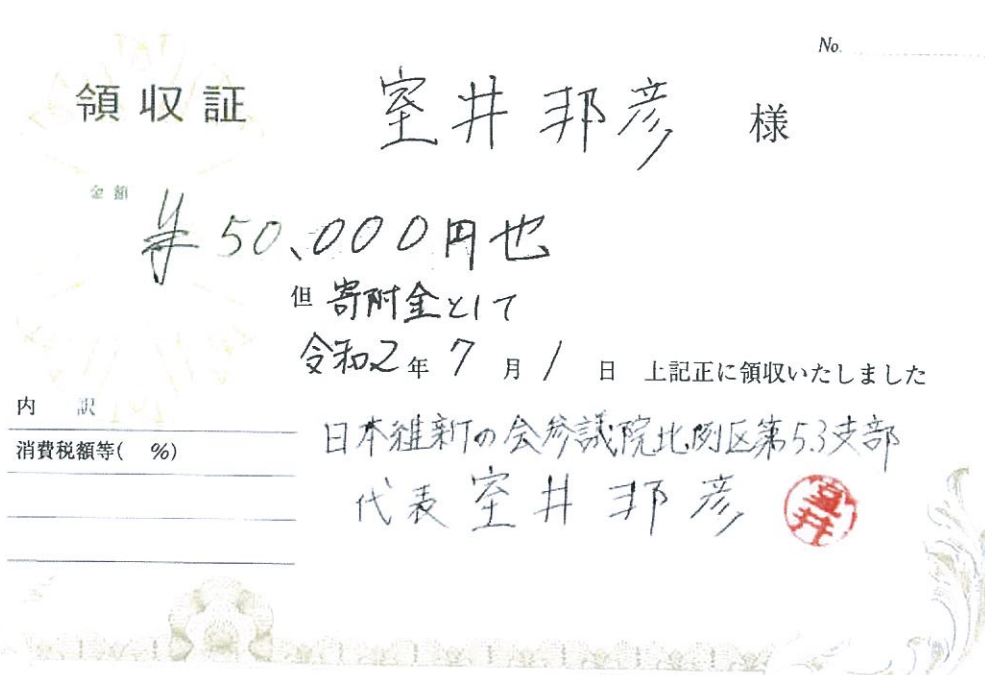 No.
領収証 室井邦彦 様
金額 ¥50,000円也
但 寄附金として
令和2年7月1日 上記正に領収いたしました
内 訳
消費税額等( %)
日本維新の会参議院比例区第53支部
代表 室井邦彦
室井